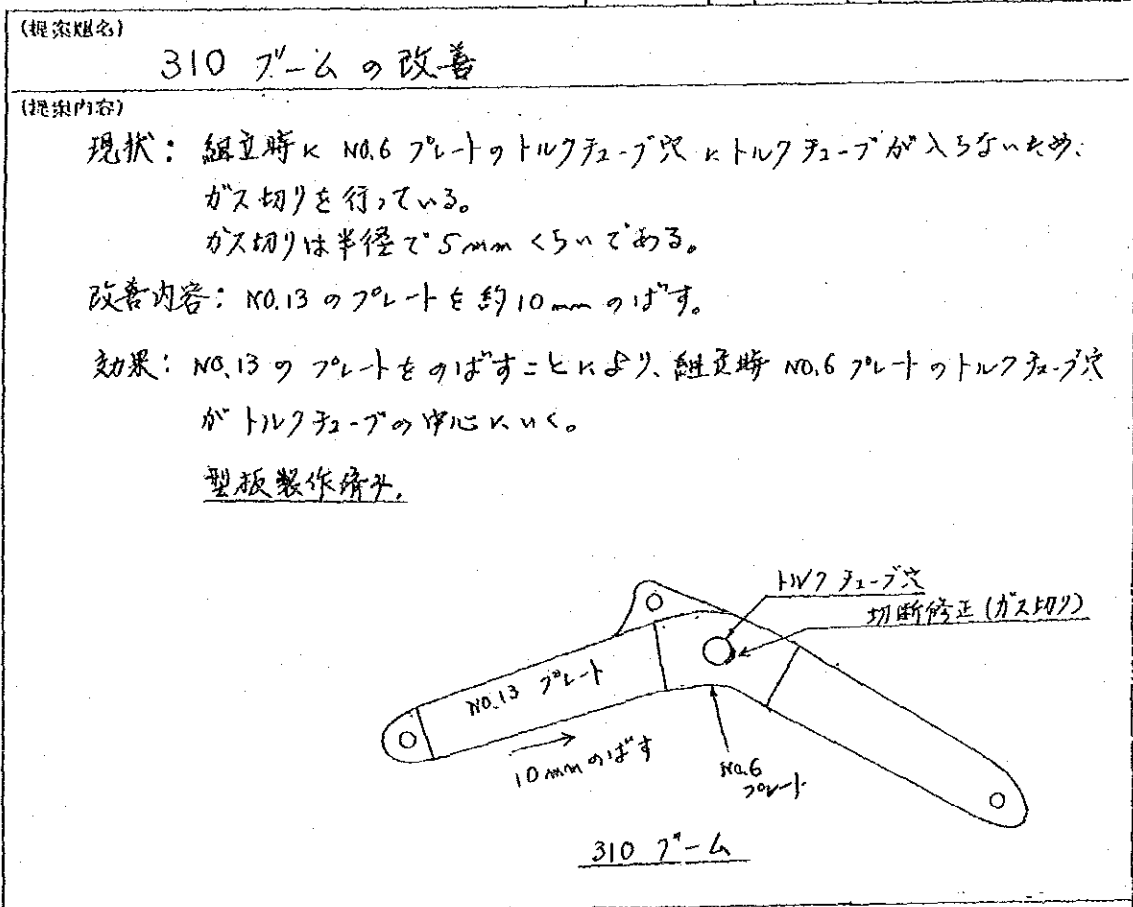 (提案題名)
310 ブームの改善
(提案内容)
現状: 組立時に NO.6 プレートのトルクチューブ穴にトルクチューブが入らないため、
ガス切りを行っている。
ガス切りは半径で 5mm くらいである。
改善内容: NO.13 のプレートを約10mm のばす。
効果: NO.13 のプレートをのばすことにより、組立時 NO.6 プレートのトルクチューブ穴
がトルクチューブの中心にいく。
型板製作済み.
トルクチューブ穴
切断修正 (ガス切り)
NO.13 プレート
10mm のばす
NO.6
プレート
310 ブーム